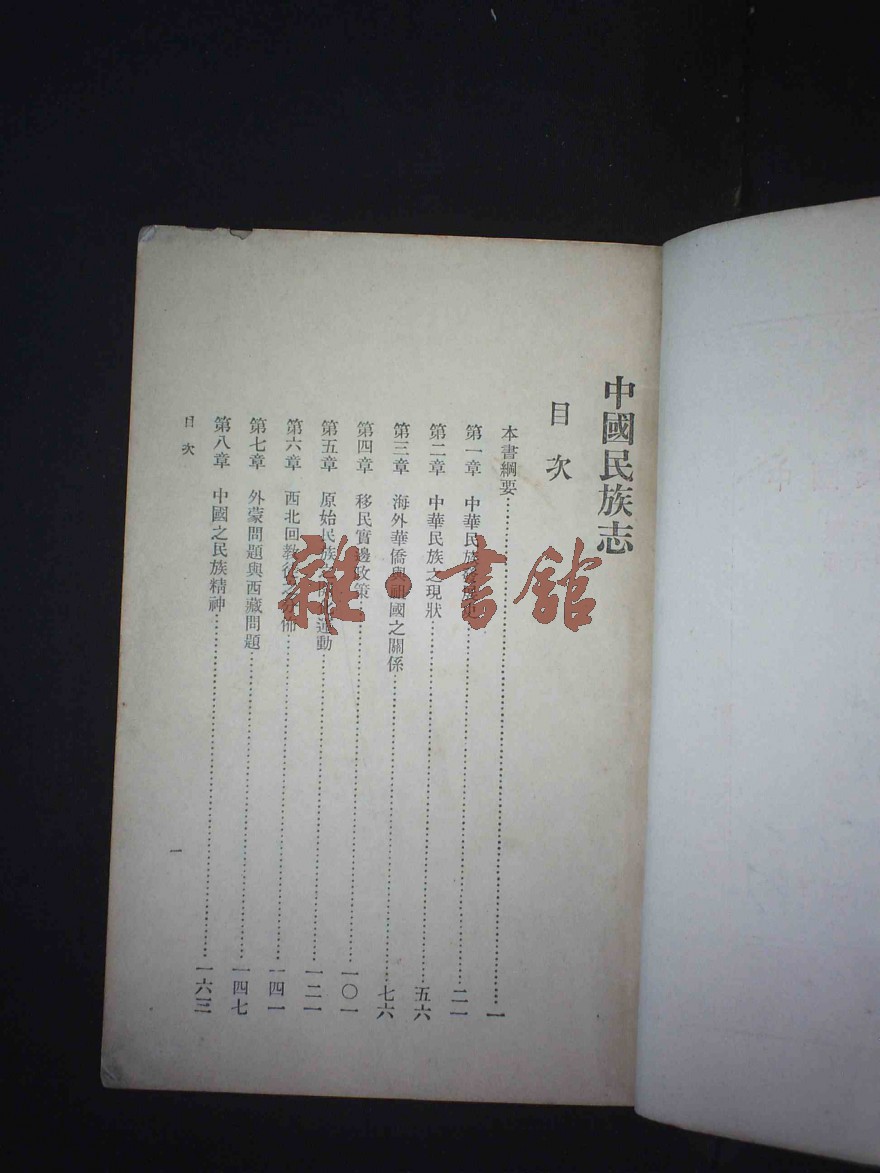 中國民族志
目次
本書綱要 一
第一章 中華民族 二一
第二章 中華民族之現狀 五六
第三章 海外華僑與祖國之關係 七六
第四章 移民實邊政策 一〇一
第五章 原始民族 運動 一二一
第六章 西北回教徒之分佈 一四一
第七章 外蒙問題與西藏問題 一四七
第八章 中國之民族精神 一六三
目次
一
雜·書館